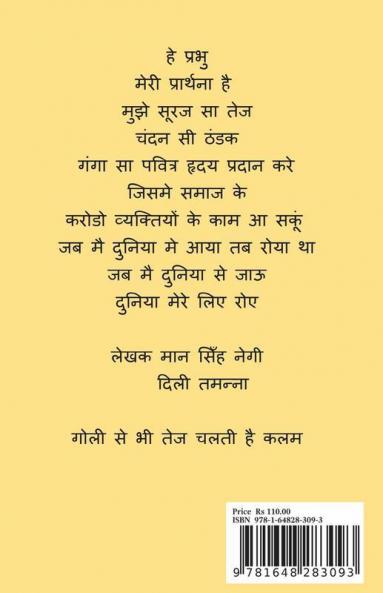 हे प्रभु
मेरी प्रार्थना है
मुझे सूरज सा तेज
चंदन सी ठंडक
गंगा सा पवित्र हृदय प्रदान करे
जिसमे समाज के
करोडो व्यक्तियों के काम आ सकूं
जब मै दुनिया मे आया तब रोया था
जब मै दुनिया से जाऊ
दुनिया मेरे लिए रोए
लेखक मान सिँह नेगी
दिली तमन्ना
गोली से भी तेज चलती है कलम
Price Rs 110.00
ISBN 978-1-64828-309-3
9 781648 283093